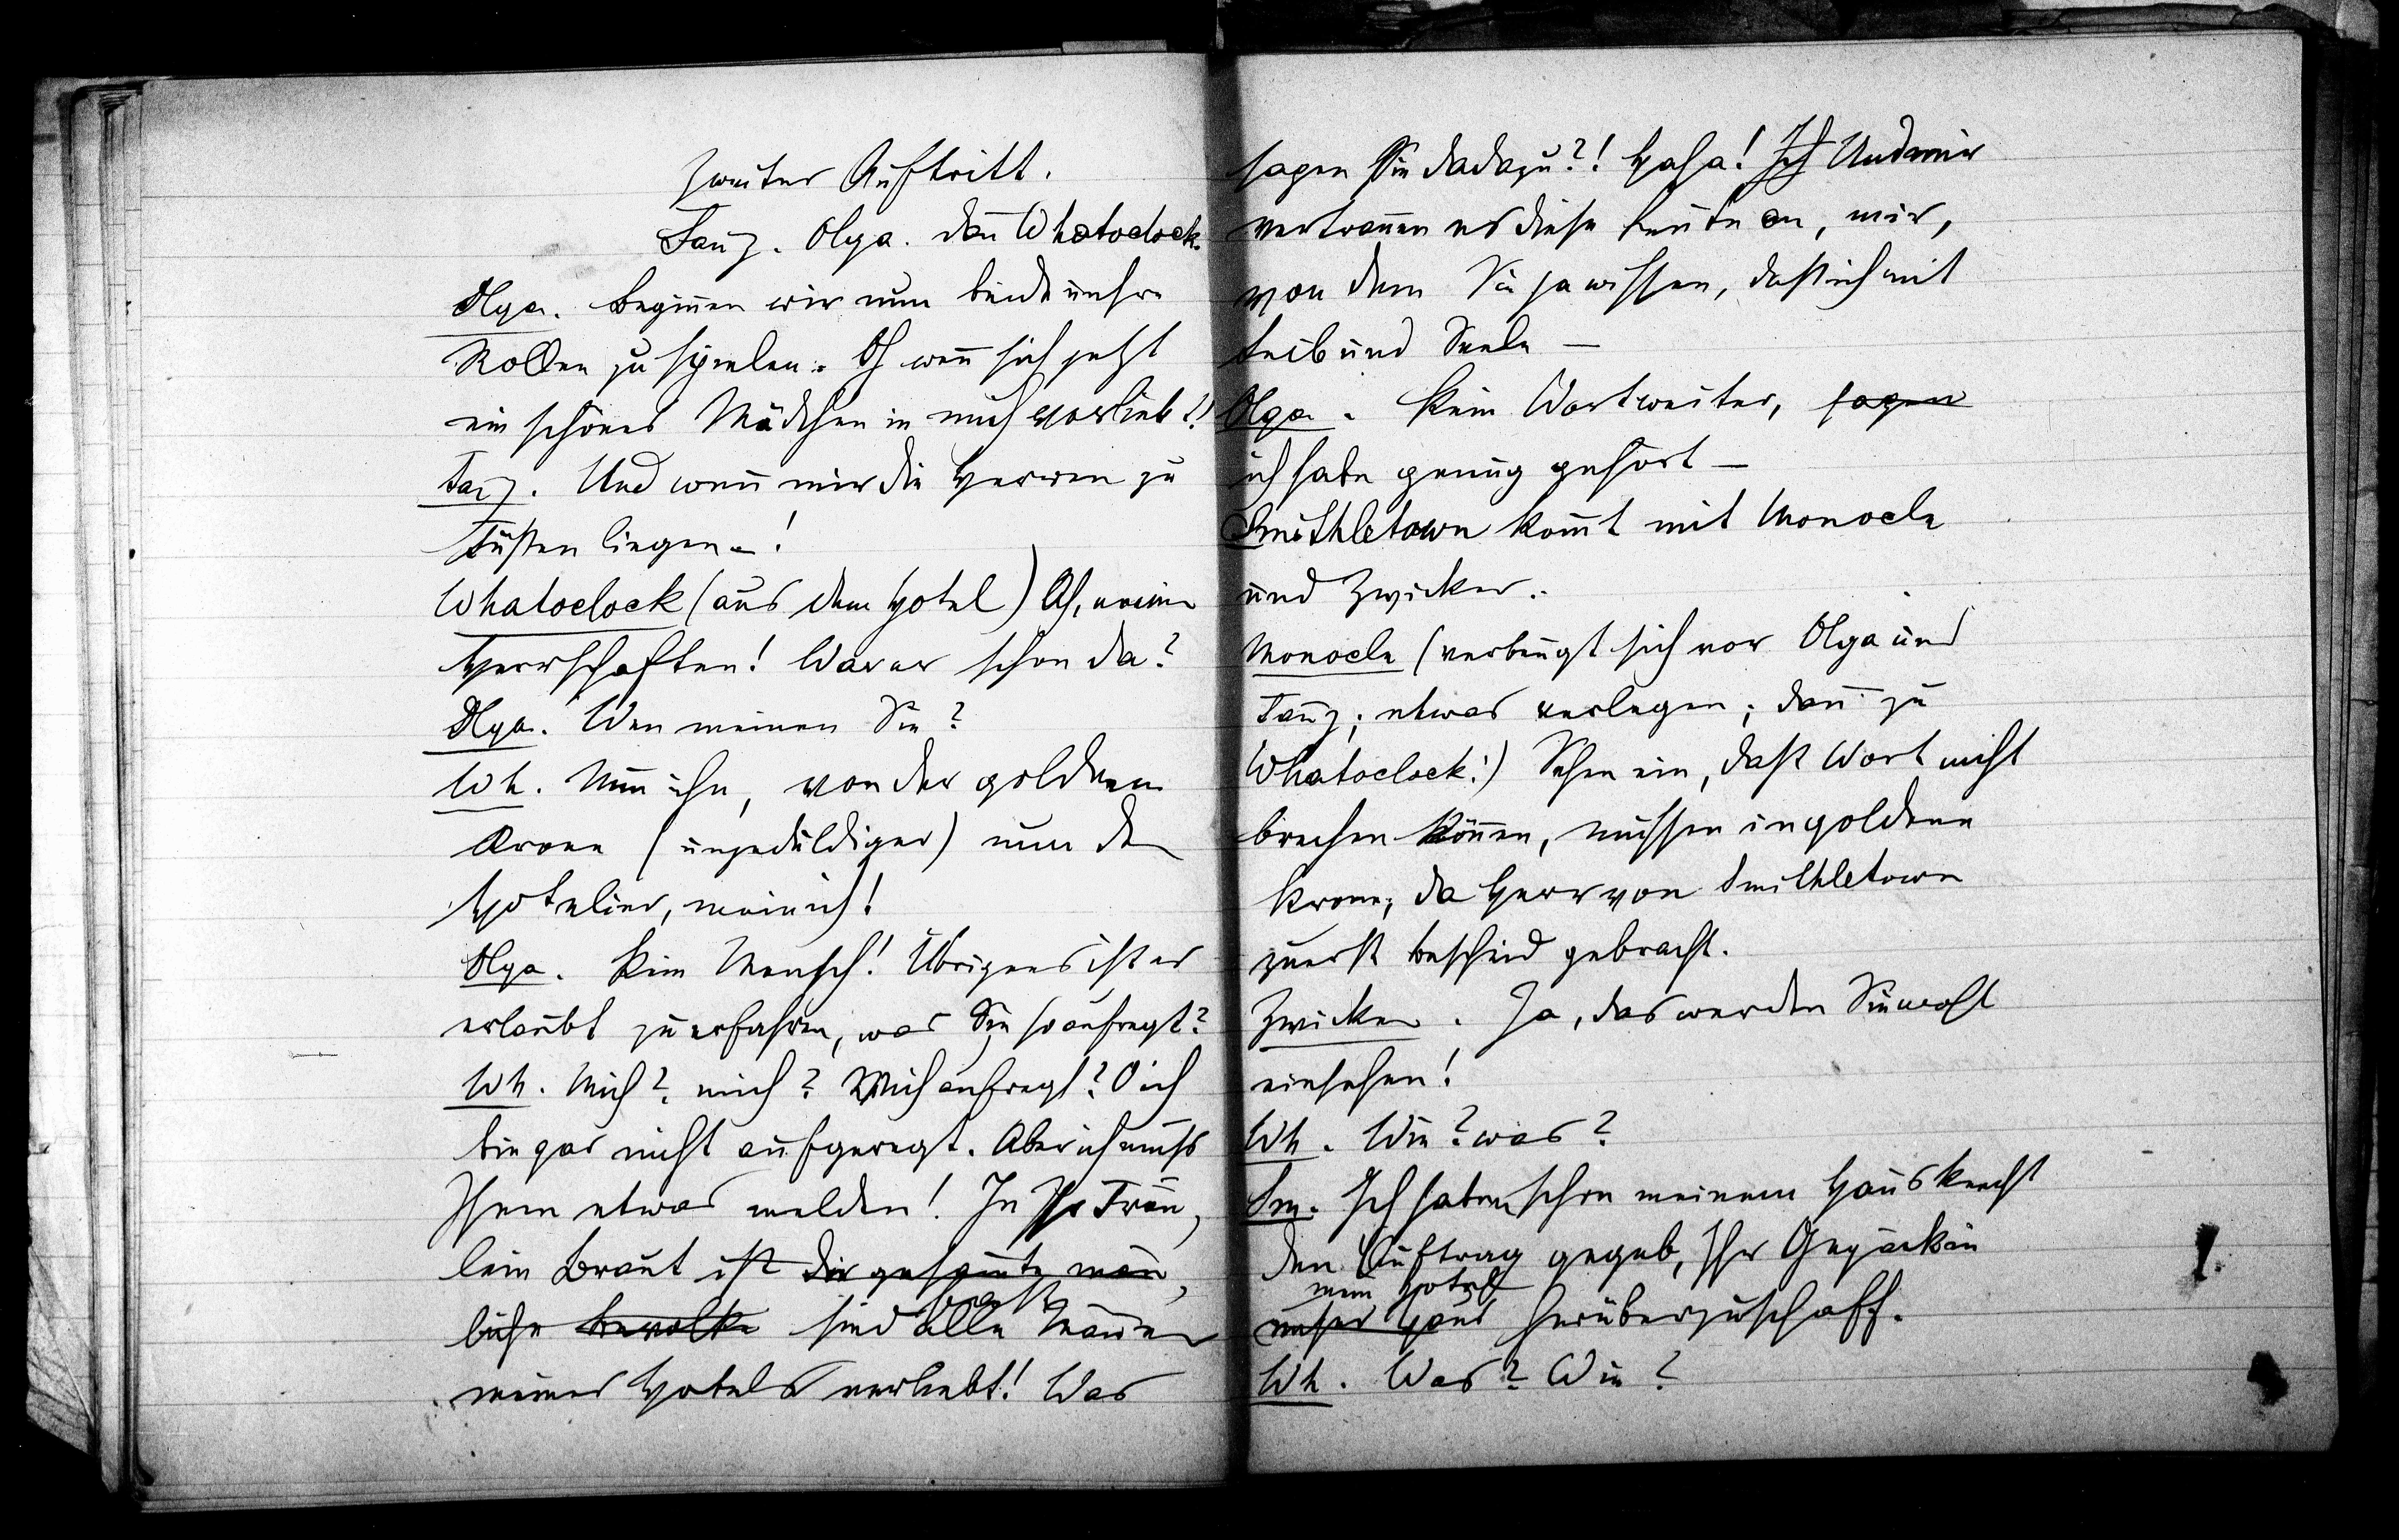 Zweiter Auftritt.
Tanz. Olga. dan̄ Whatoclock.
Olga. Beginnen wir nun beide unsre
Rollen zu spielen. Oh wen̄ sich jetzt
ein schönes Mädchen in mich verliebt!!
Tanz. Und wen̄ mir die Herren zu
Füßen liegen –!
Whatoclock (aus dem Hotel) Ah, meine
Herrschaften! War er schon da?
Olga. Wen meinen Sie?
Wh. Nun ihn, von der goldnen
Krone (ungeduldiger) nun den
Hotelier, mein ich!
Olga. Kein Mensch! Übrigens ist es
erlaubt zu erfahren, was Sie so aufregt?
Wh. Mich? mich? Mich aufregt? O ich
bin gar nicht aufgeregt. Aber ich muss
Ihnen etwas melden! In Ihr Fräu,
lein Braut ist die gesamte män,
liche Bevolke sind fast alle Männer
meines Hotels verliebt! Was
sagen Sie da dazu?! Haha! Ich Und mir
vertrauen es diese Leute an, mir,
von dem Sie ja wissen, daß ich mit
Leib und Seele –
Olga. Kein Wort weiter, sagen
ich habe genug gehört –
Smithletown kom̄t mit Monocle
und Zwicker.
Monocle (verbeugt sich vor Olga und
Tanz; etwas verlegen; dan̄ zu
Whatoclock:) Sehen ein, daß Wort nicht
brechen kön̄en, müssen in goldene
Krone; da Herr von Smithletown
zuerst Bescheid gebracht.
Zwicker. Ja, das werden Sie wohl
einsehen!
Wh. Wie? was?
Sm. Ich habe schon meinem Hausknecht
den Auftrag gegeb, Ihr Gepäck in
mein Hotel
unser Haus herüberzuschaff.
Wh. Was? Wie?